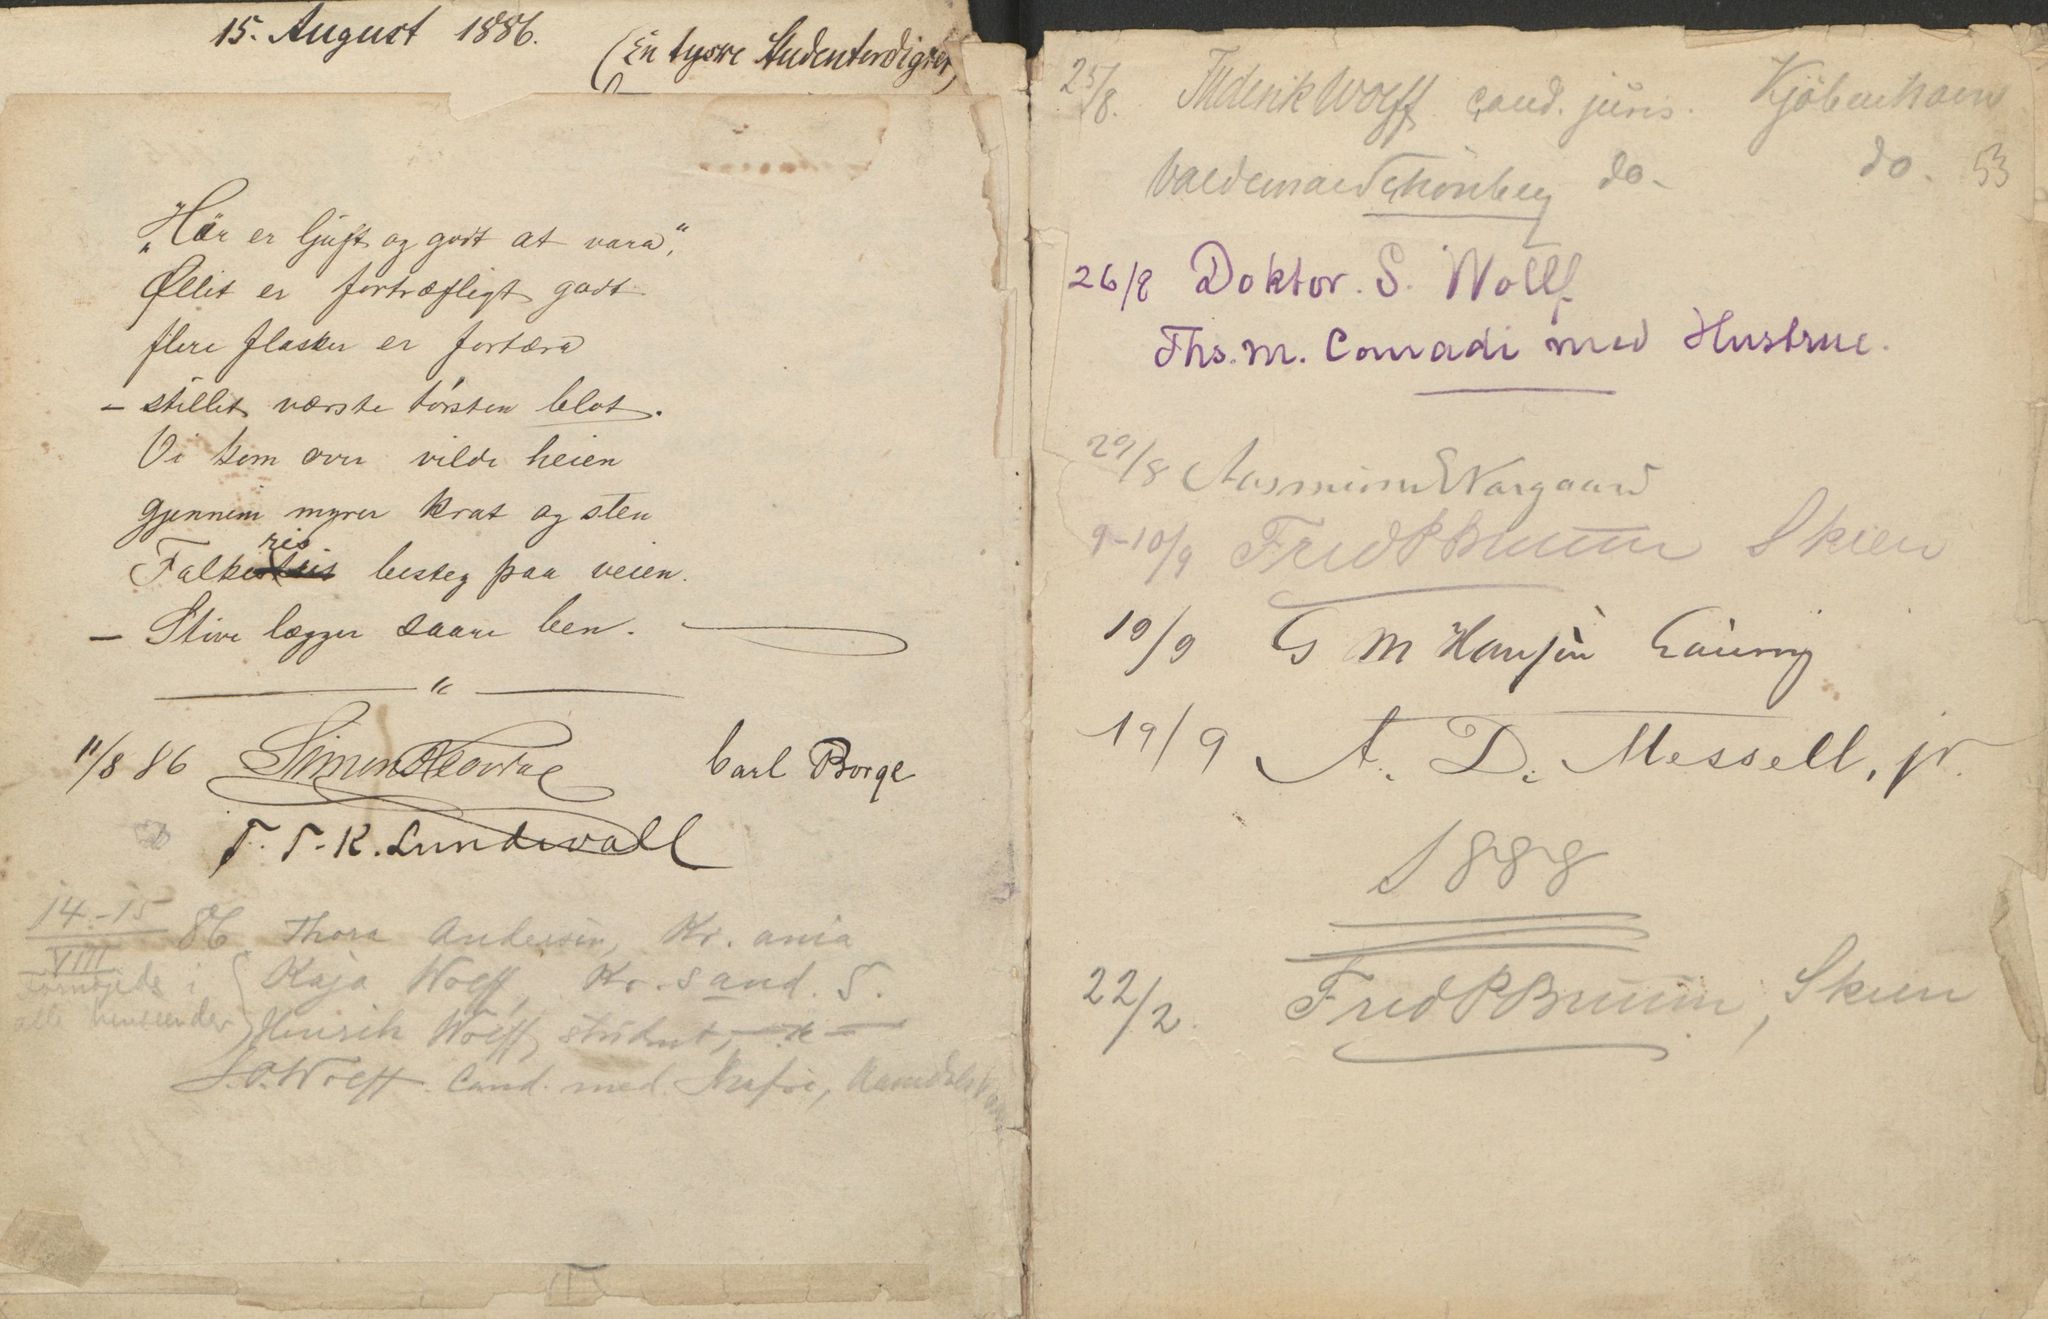 15. August 1886.
(En tyske Studenterdigter,
„Här er ljuft og godt at vara,“
Øllet er fortræfligt godt
flere flasker er fortæra
– stillet værste törsten blot.
Vi kom over vilde heien
gjennem myrer krat og sten
ris
Falke besteg paa veien.
– Stive lægger saare ben.
11/8 86 Simon Carl Borge
T. T. K. Lundevall
14.-15 VIII 86. Thora Andersen, Kr. ania
Fornøiede i { Kaja Wolff, Kr. sand. S.
alle henseender } Henrik Wolff, student, — " —
S.O. Wolff. Cand. med.
25/8. Frederik Wolff cand. juris. Kjöbenhavn
Valdemar Schönberg do. do. 53
26/8 Doktor. S. Wolff.
Ths. M. Conradi med Hustrue.
29/8 Rasmine Norgaard
9-10/9 Fred P Bruun Skien
19/9 G M Hansen
19/9 A. D. Messell, jr.
1888
22/2. Fred P Bruun, Skien